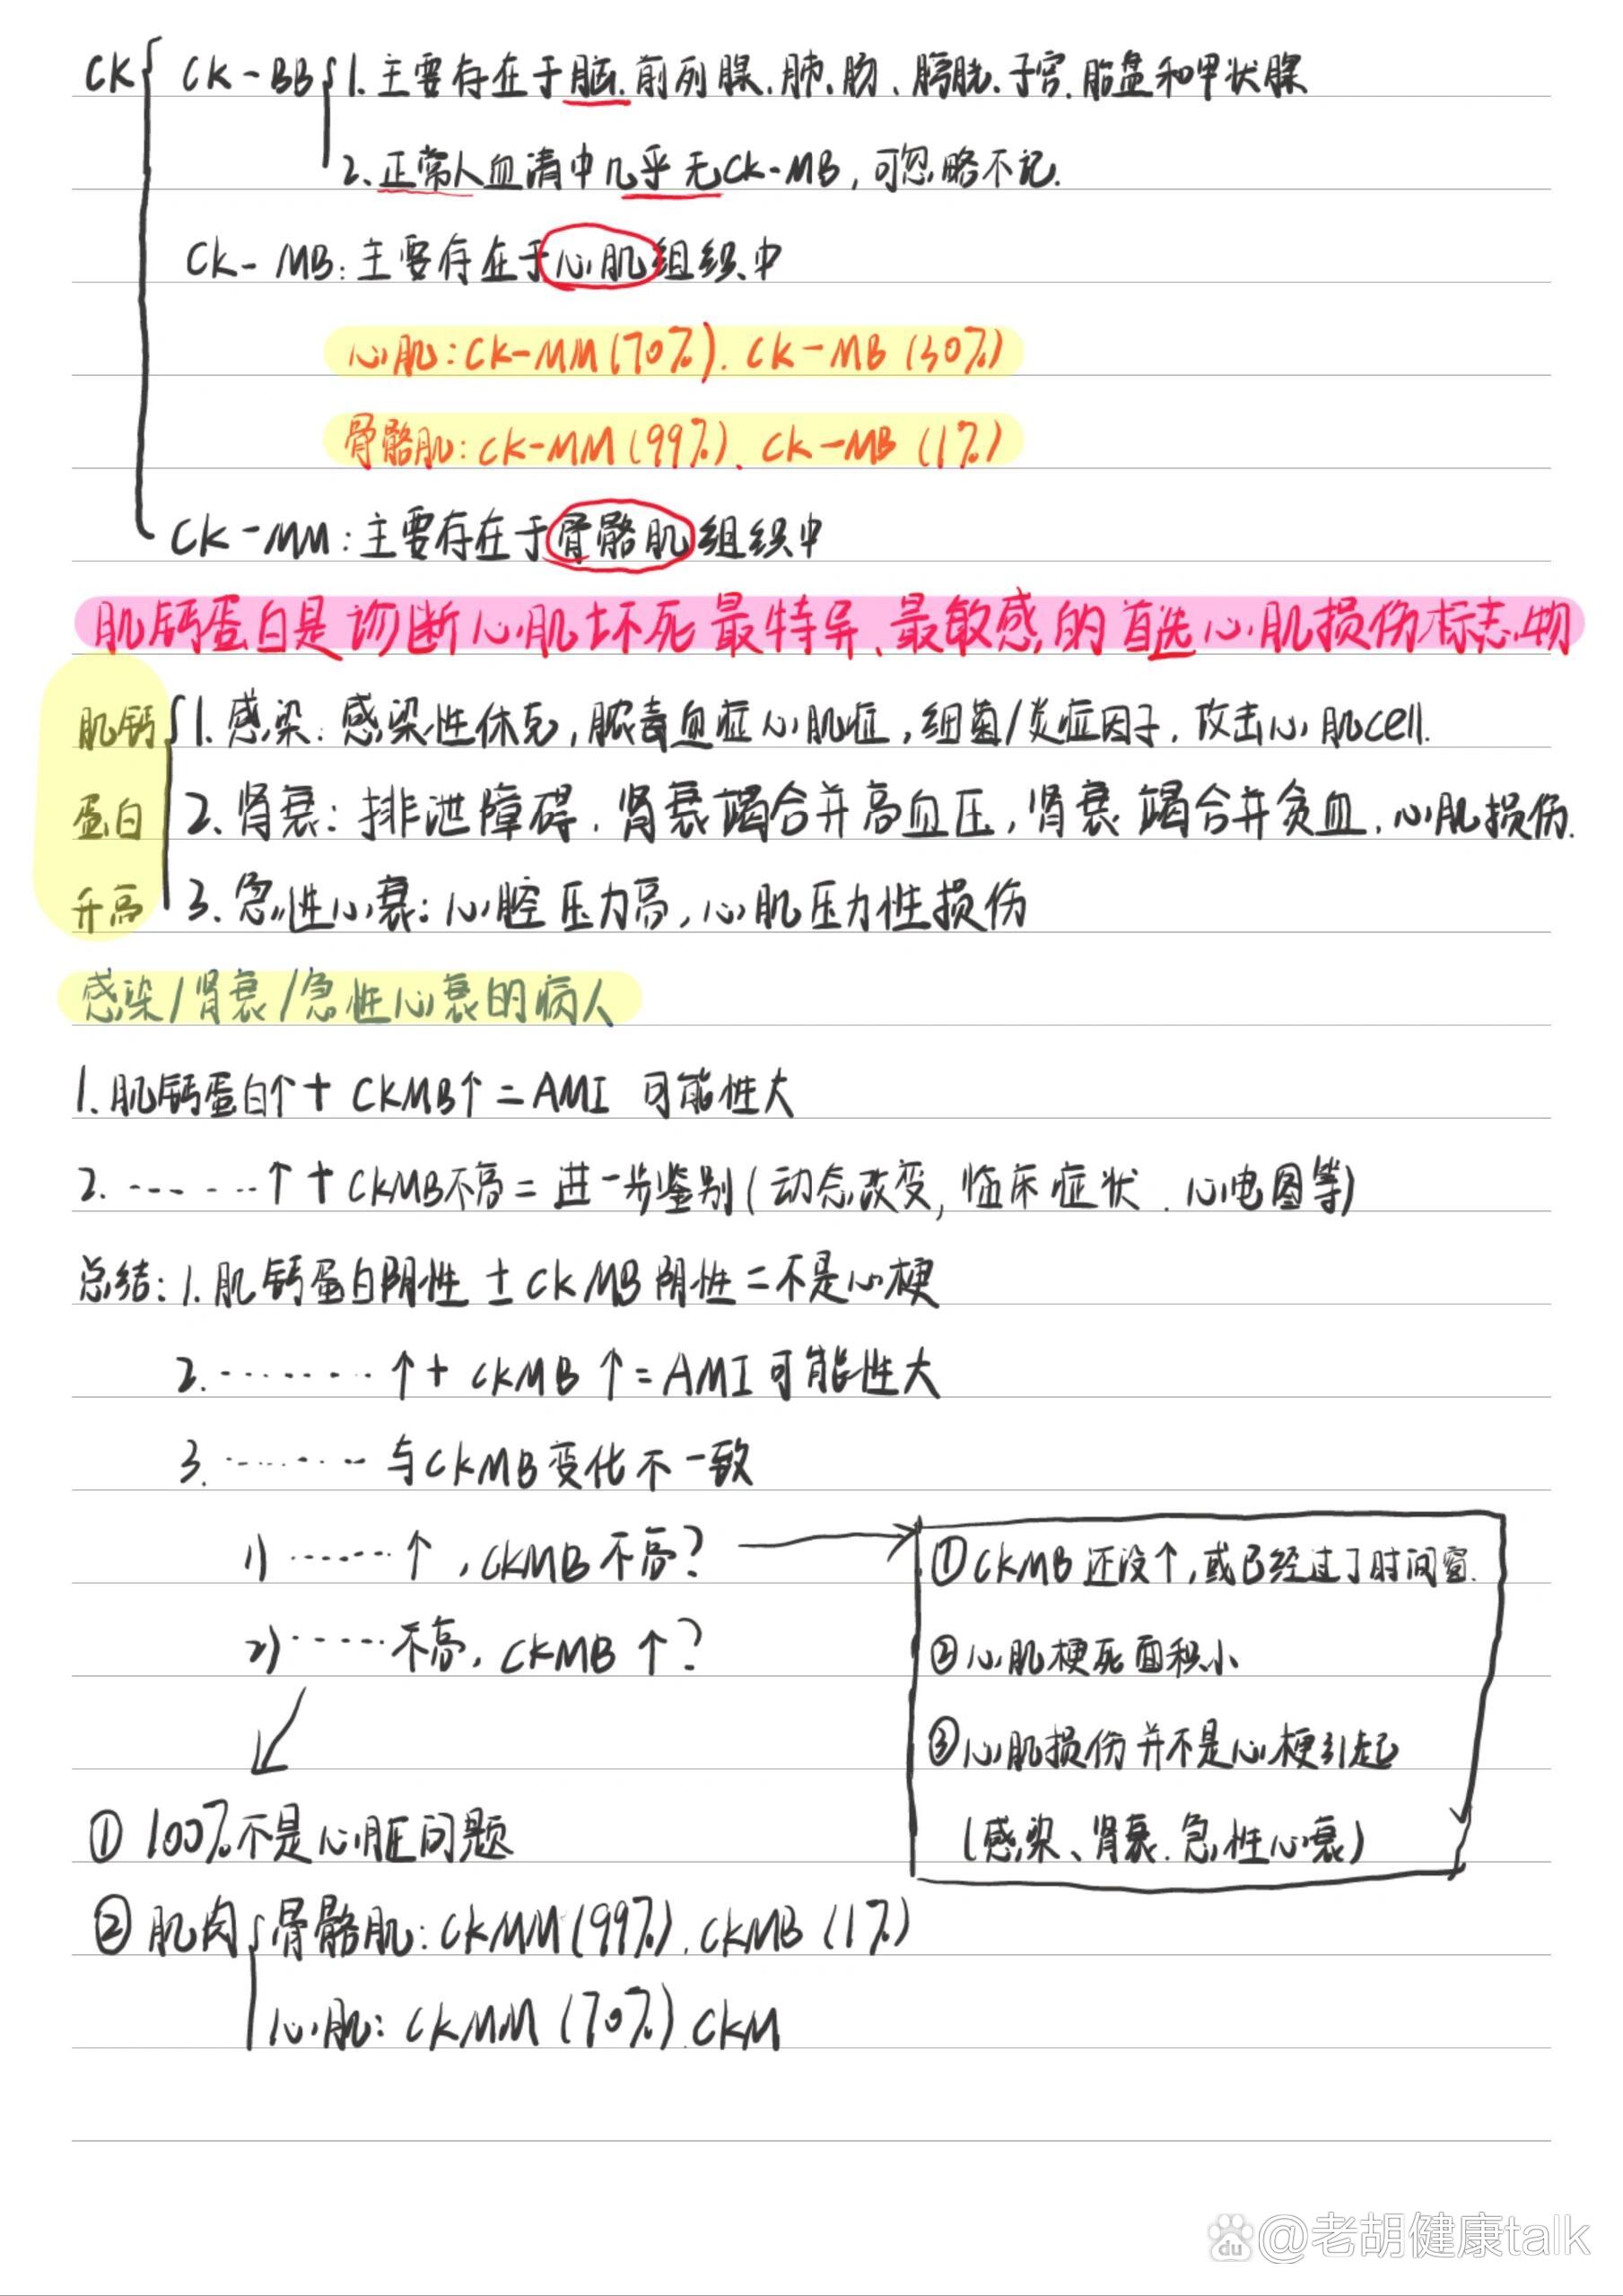 CK CK-BB 1. 主要存在于脑、前列腺、肺、肠、膀胱、子宫、胎盘和甲状腺
2. 正常人血清中几乎无CK-MB, 可忽略不记.
CK-MB: 主要存在于心肌组织中
心肌: CK-MM(70%). CK-MB(30%)
骨骼肌: CK-MM(99%)、CK-MB(1%)
CK-MM: 主要存在于骨骼肌组织中
肌钙蛋白是诊断心肌坏死最特异、最敏感的首选心肌损伤标志物
肌钙蛋白升高
1. 感染: 感染性休克, 脓毒血症心肌症, 细菌/炎症因子, 攻击心肌cell.
2. 肾衰: 排泄障碍, 肾衰竭合并高血压, 肾衰竭合并贫血, 心肌损伤.
3. 急性心衰: 心腔压力高, 心肌压力性损伤
感染/肾衰/急性心衰的病人
1. 肌钙蛋白↑+CKMB↑=AMI 可能性大
2. ………↑+CKMB不高=进一步鉴别(动态改变, 临床症状、心电图等)
总结: 1. 肌钙蛋白阴性±CKMB阴性=不是心梗
2. ………↑+CKMB↑=AMI可能性大
3. ………与CKMB变化不一致
1) ………↑, CKMB不高?
2) ……不高, CKMB↑?
①CKMB还没↑, 或已经过了时间窗.
②心肌梗死面积小
③心肌损伤并不是心梗引起
(感染、肾衰、急性心衰)
① 100%不是心脏问题
② 肌肉 骨骼肌: CKMM(99%). CKMB(1%)
心肌: CKMM(70%). CKM
du @老胡健康talk